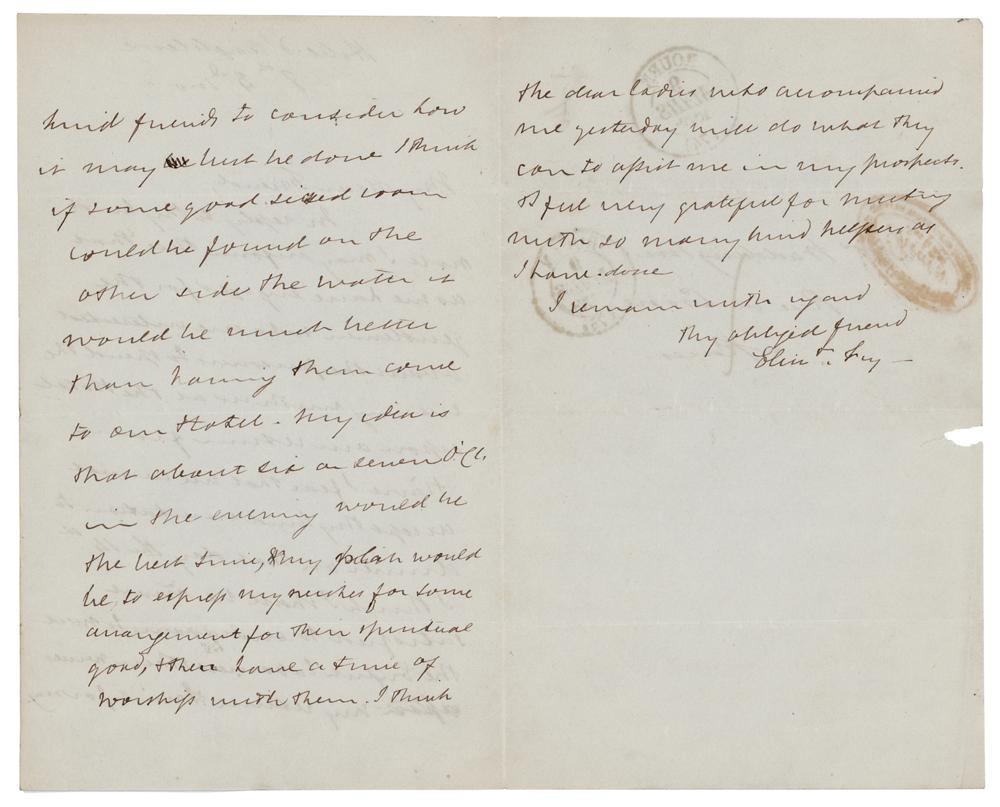 kind friends to consider how
it may best be done I think
if some good sized room
could be found on the
other side the water it
would be much better
than having them come
to our Hotel - my idea is
that about six or seven O'Cl.
in the evening would be
the best time, & my plan would
be, to express my wishes for some
arrangement for their spiritual
good, & then have a time of
worship with them. I think
the dear ladies who accompanied
me yesterday will do what they
can to assist me in my prospects.
I feel very grateful for meeting
with so many kind helpers as
I have done
I remain with regard
thy obliged friend
Elizth. Fry —